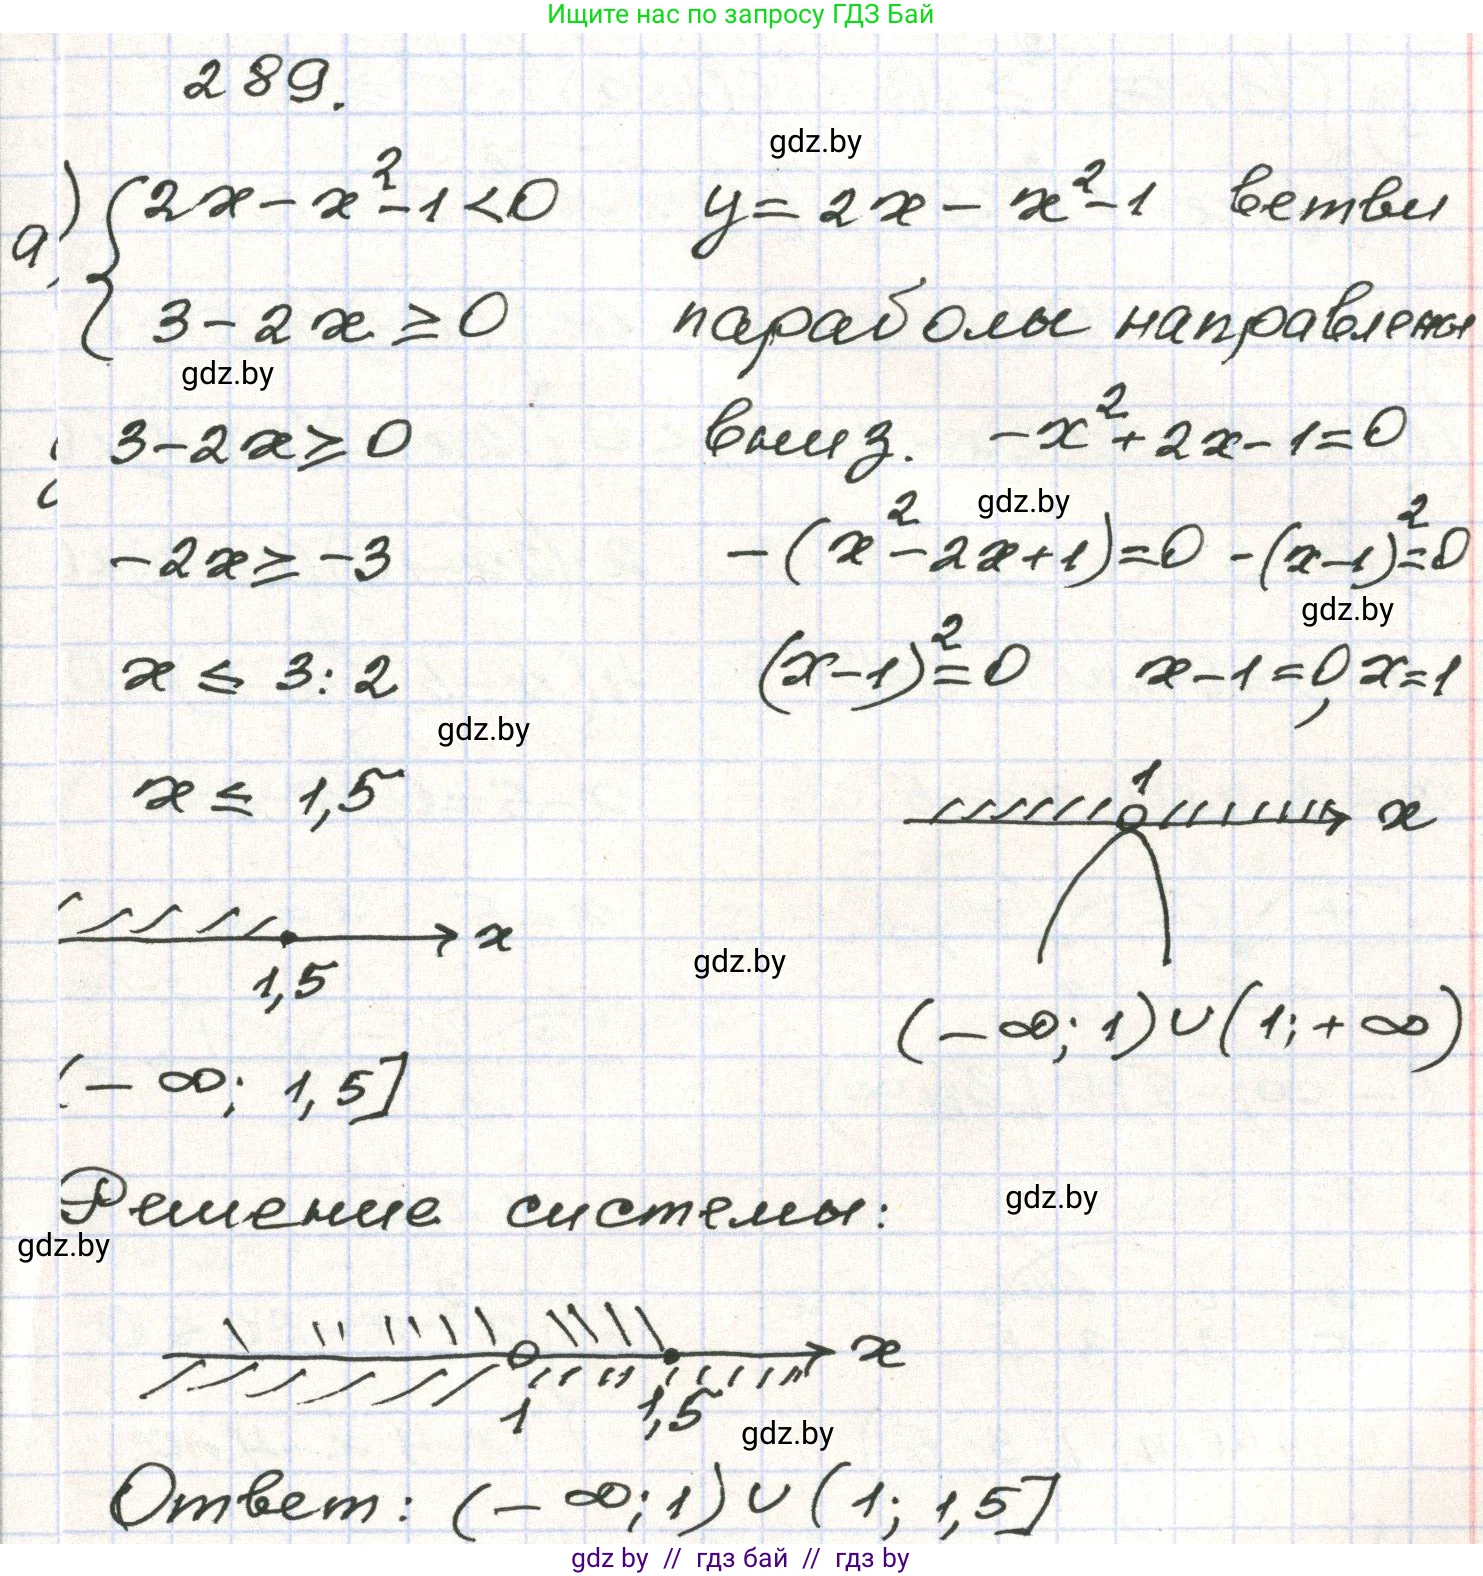 Ищите нас по запросу ГДЗ Бай
289.
gdz.by
а) { 2x - x² - 1 < 0
3 - 2x ≥ 0
gdz.by
3 - 2x ≥ 0
-2x ≥ -3
x ≤ 3 : 2
gdz.by
x ≤ 1,5
x
1,5
(-∞; 1,5]
y = 2x - x² - 1 ветви
параболы направлены
вниз. -x² + 2x - 1 = 0
gdz.by
-(x² - 2x + 1) = 0 -(x-1)² = 0
gdz.by
(x-1)² = 0 x - 1 = 0, x = 1
1
x
gdz.by
(-∞; 1) ∪ (1; +∞)
Решение системы:
gdz.by
gdz.by
x
1 1,5
gdz.by
Ответ: (-∞; 1) ∪ (1; 1,5]
gdz by // гдз бай // гдз by